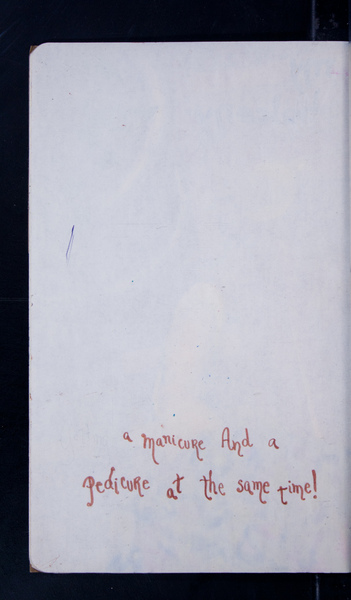 a manicure And a
Pedicure at the same time!